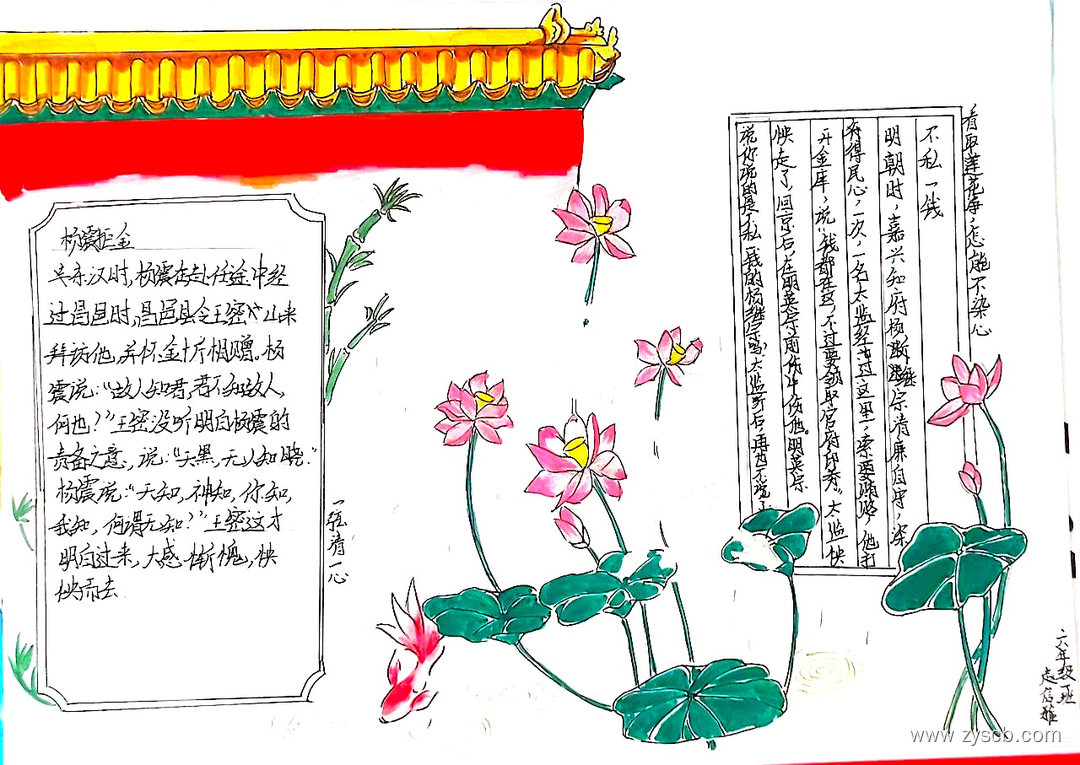 杨震拒金
东汉时,杨震在赴任途中经
过昌邑时,昌邑县令王密
拜访他,并怀金十斤相赠,杨
震说:“故人知君,君不知故人,
何也?”王密没听明白杨震的
责备之意,说:“天黑,无人知晓。”
杨震说:“天知,神知,你知,
我知,何谓无知?”王密这才
明白过来,大感惭愧,怏
怏而去
一弦清一心
看取莲花净,怎能不染心
不私一钱
明朝时,嘉兴知府杨继宗清廉自守,深
得民心,一次,一名太监经过这里,索要贿赂,他打
开金库,说“我都在这,不过要领取官府印券。”太监怏
怏走了,回京后,在明英宗前伤他。明英宗
说你说的是不私一钱的杨继宗吗,太监听后,再也不
六年级 班
www.zyscb.com